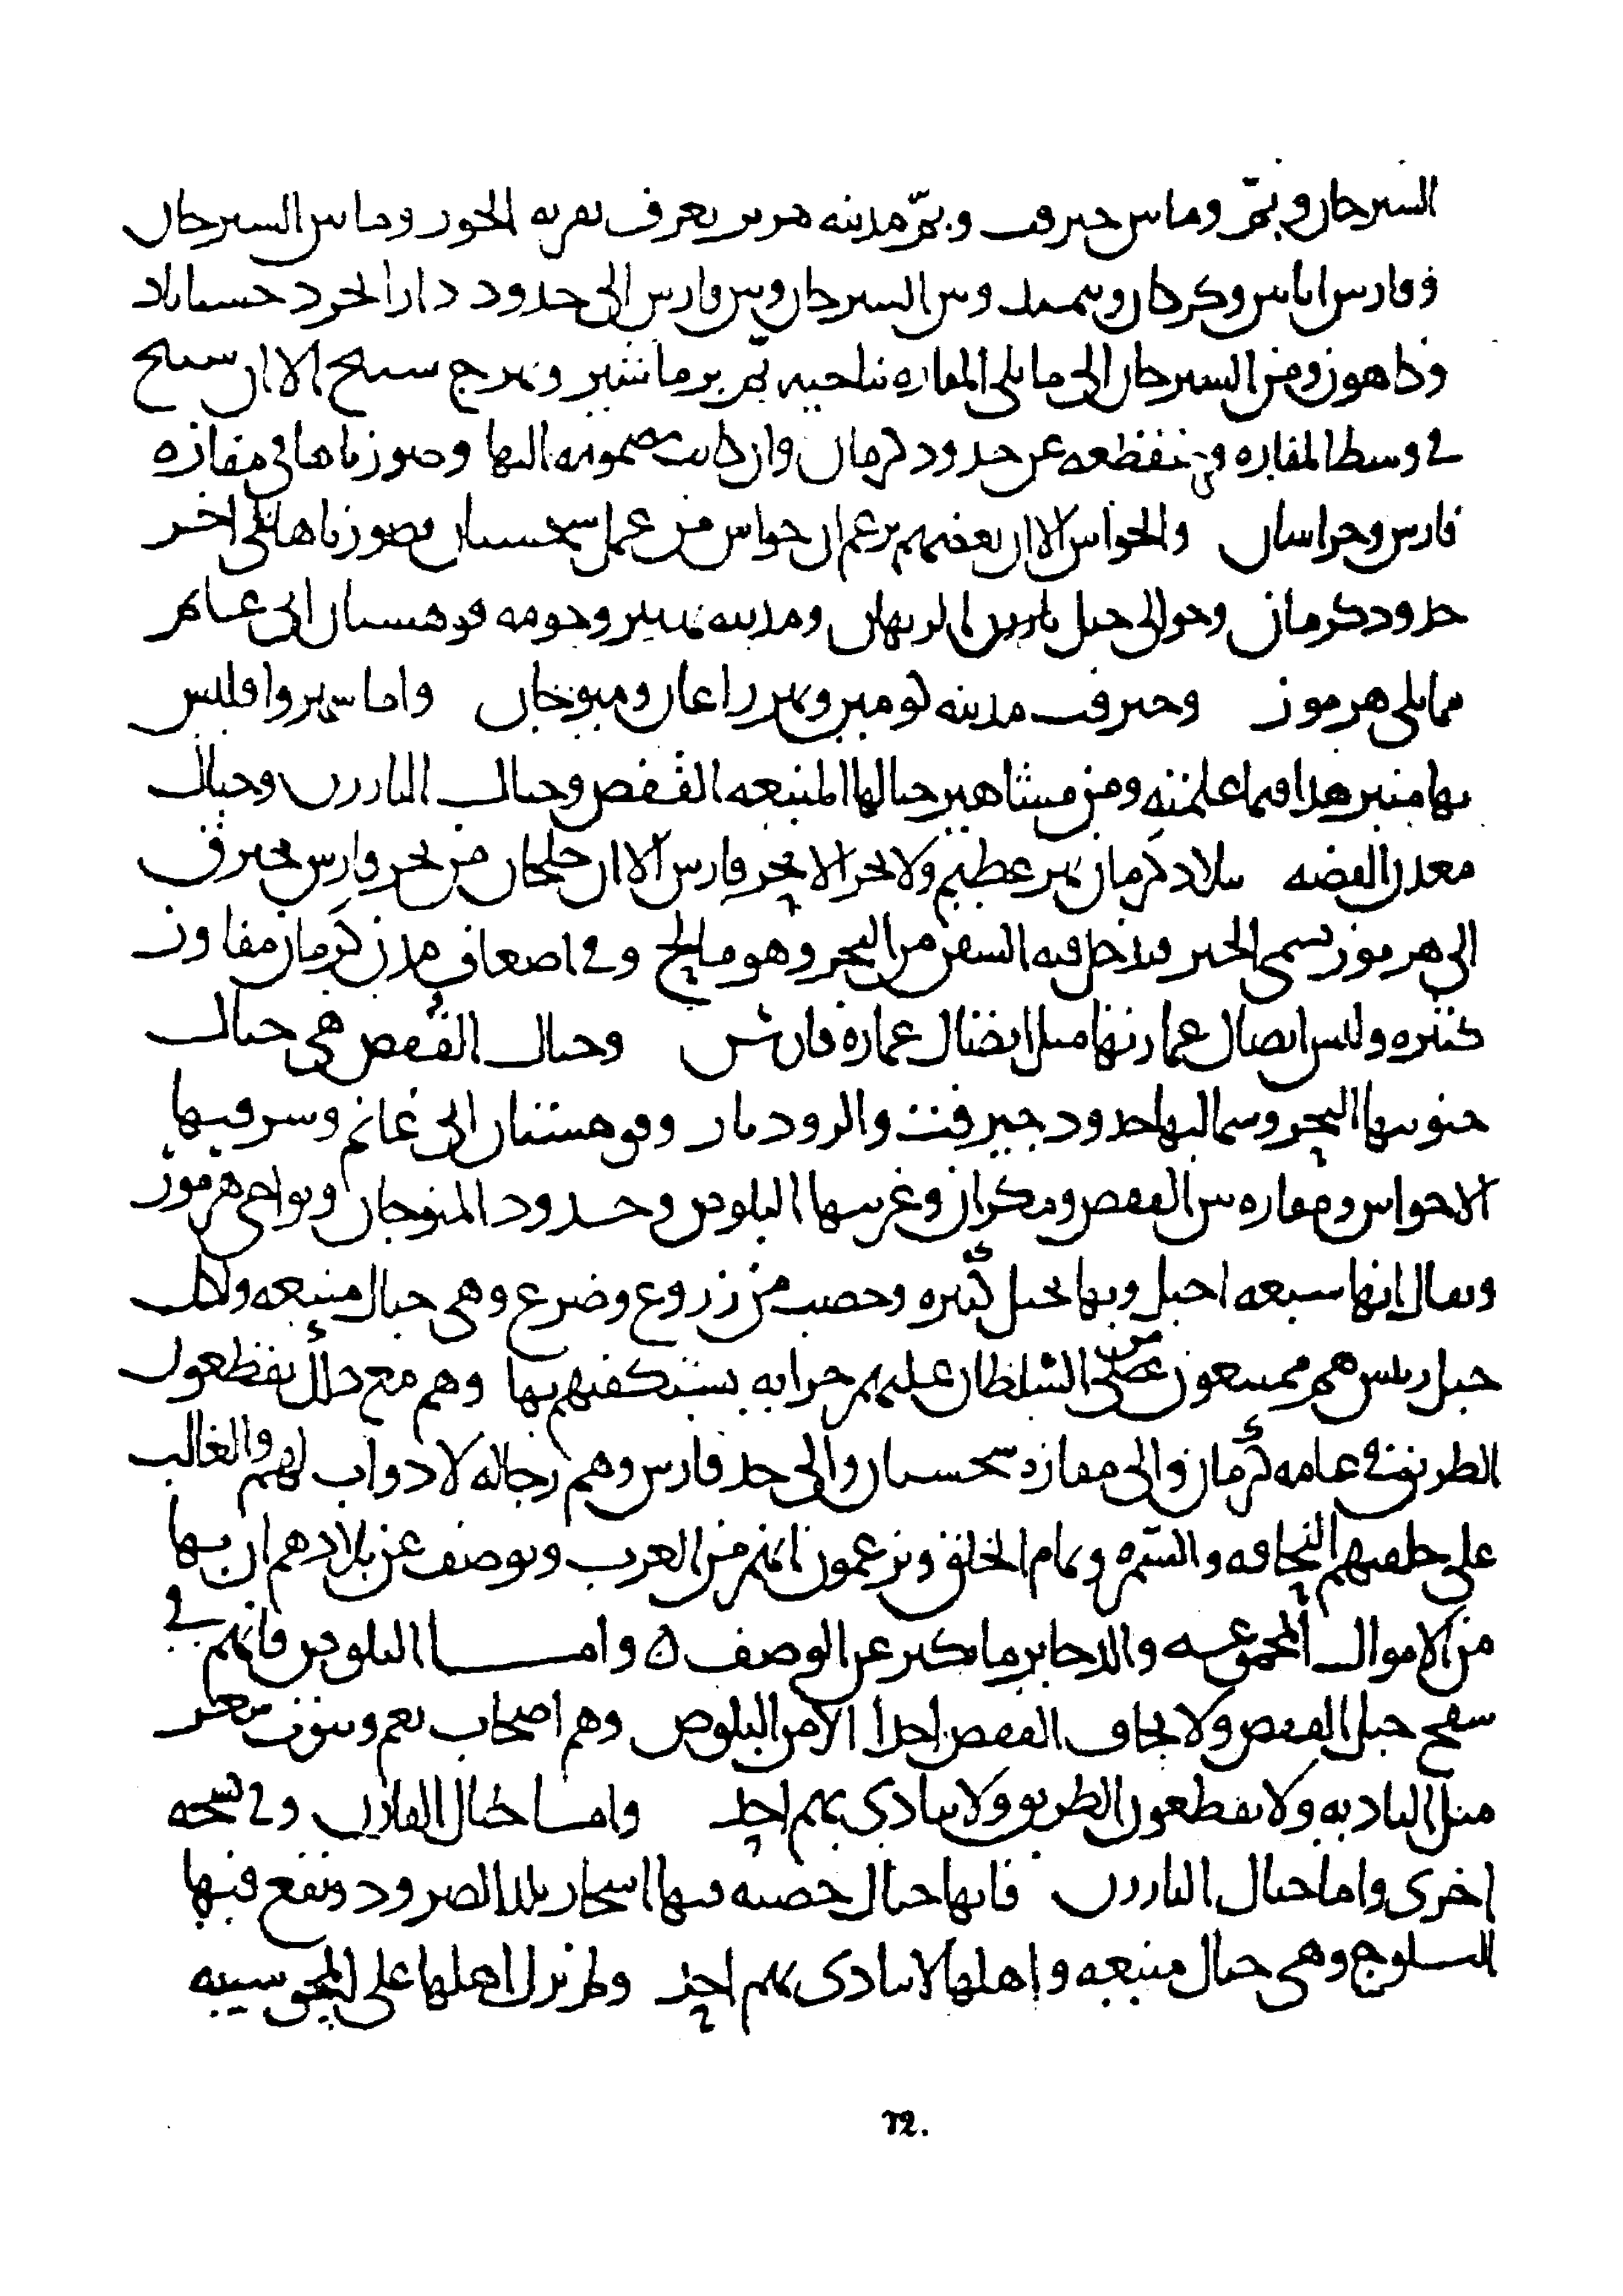 السيرجان وبمّ وما بين جيرفت وبمّ مدينه هرمز يعرف بقريه الجوز وما بين السيرجان
وفارس اناس وكردكان وبيمند وبين السيرجان وبين فارس الى حدود دارابجرد حسناباد
وكاهون ومن السيرجان الى ما يلى المفازه بناحيه بمّ نرماشير وبهرج سنيج الا ان سنيج
فى وسط المفازه وهى منقطعه عن حدود كرمان وان كانت مضمومه اليها وصورناها فى مفازه
فارس وخراسان والخواش الا ان بعضهم يزعم ان خواش من عمل سجستان فصورناها فى اخر
حدود كرمان وحوالى جبل بارز الريقان ومدينه وحومه قوهستان ابى غانم
مما يلى هرموز وجيرفت مدينه كوميز ونهر زاغان ومنوجان واما سهروا فليس
بها منبر هذا فيما علمته ومن مشاهير جبالها المنيعه القفص وجبال البارز وجبال
معدن الفضه ببلاد كرمان نهر عظيم ولا بحر الا بحر فارس الا ان خليجا من بحر فارس يخترق
الى هرموز يسمى الجير فيدخل فيه السفن من البحر وهو مالح وفى اضعاف مدن كرمان مفاوز
كثيره وليس اتصال عمارتها مثل اتصال عماره فارس وجبال القفص هى جبال
جنوبيها البحر وشماليها حدود جيرفت والروذبار وقوهستان ابى غانم وشرقيها
الاخواش ومفازه بين القفص ومكران وغربيها البلوص وحدود المنوجان ونواحى هرموز
ويقال انها سبعه اجبل وبها نخيل كثيره وخصب من زروع وضرع وهى جبال منيعه ولكل
جبل رئيس هم ممتنعون على السلطان عليهم جرايه يستكفيهم بها وهم مع ذلك يقطعون
الطريق فى عامه كرمان والى مفازه سجستان والى حد فارس وهم رجاله لا دواب لهم والغالب
على خلقهم النحافه والسمره وتمام الخلق ويزعمون انهم من العرب ويوصف عن بلادهم ان بها
من الاموال المجموعه والذخاير ما يكثر عن الوصف ه واما البلوص فانهم فى
سفح جبل القفص ولا يخاف القفص احدا الا من البلوص وهم اصحاب نعم وبيوت شعر
مثل الباديه ولا يقطعون الطريق ولا يتاذى بهم احد واما جبال القارن وفى نسخه
اخرى واما جبال البارز فانها جبال خصبه فيها اشجار بلد الصرود ويقع فيها
الثلوج وهى جبال منيعه واهلها لا يتاذى بهم احد ولم يزل اهلها على المجوسيه
٧٢.